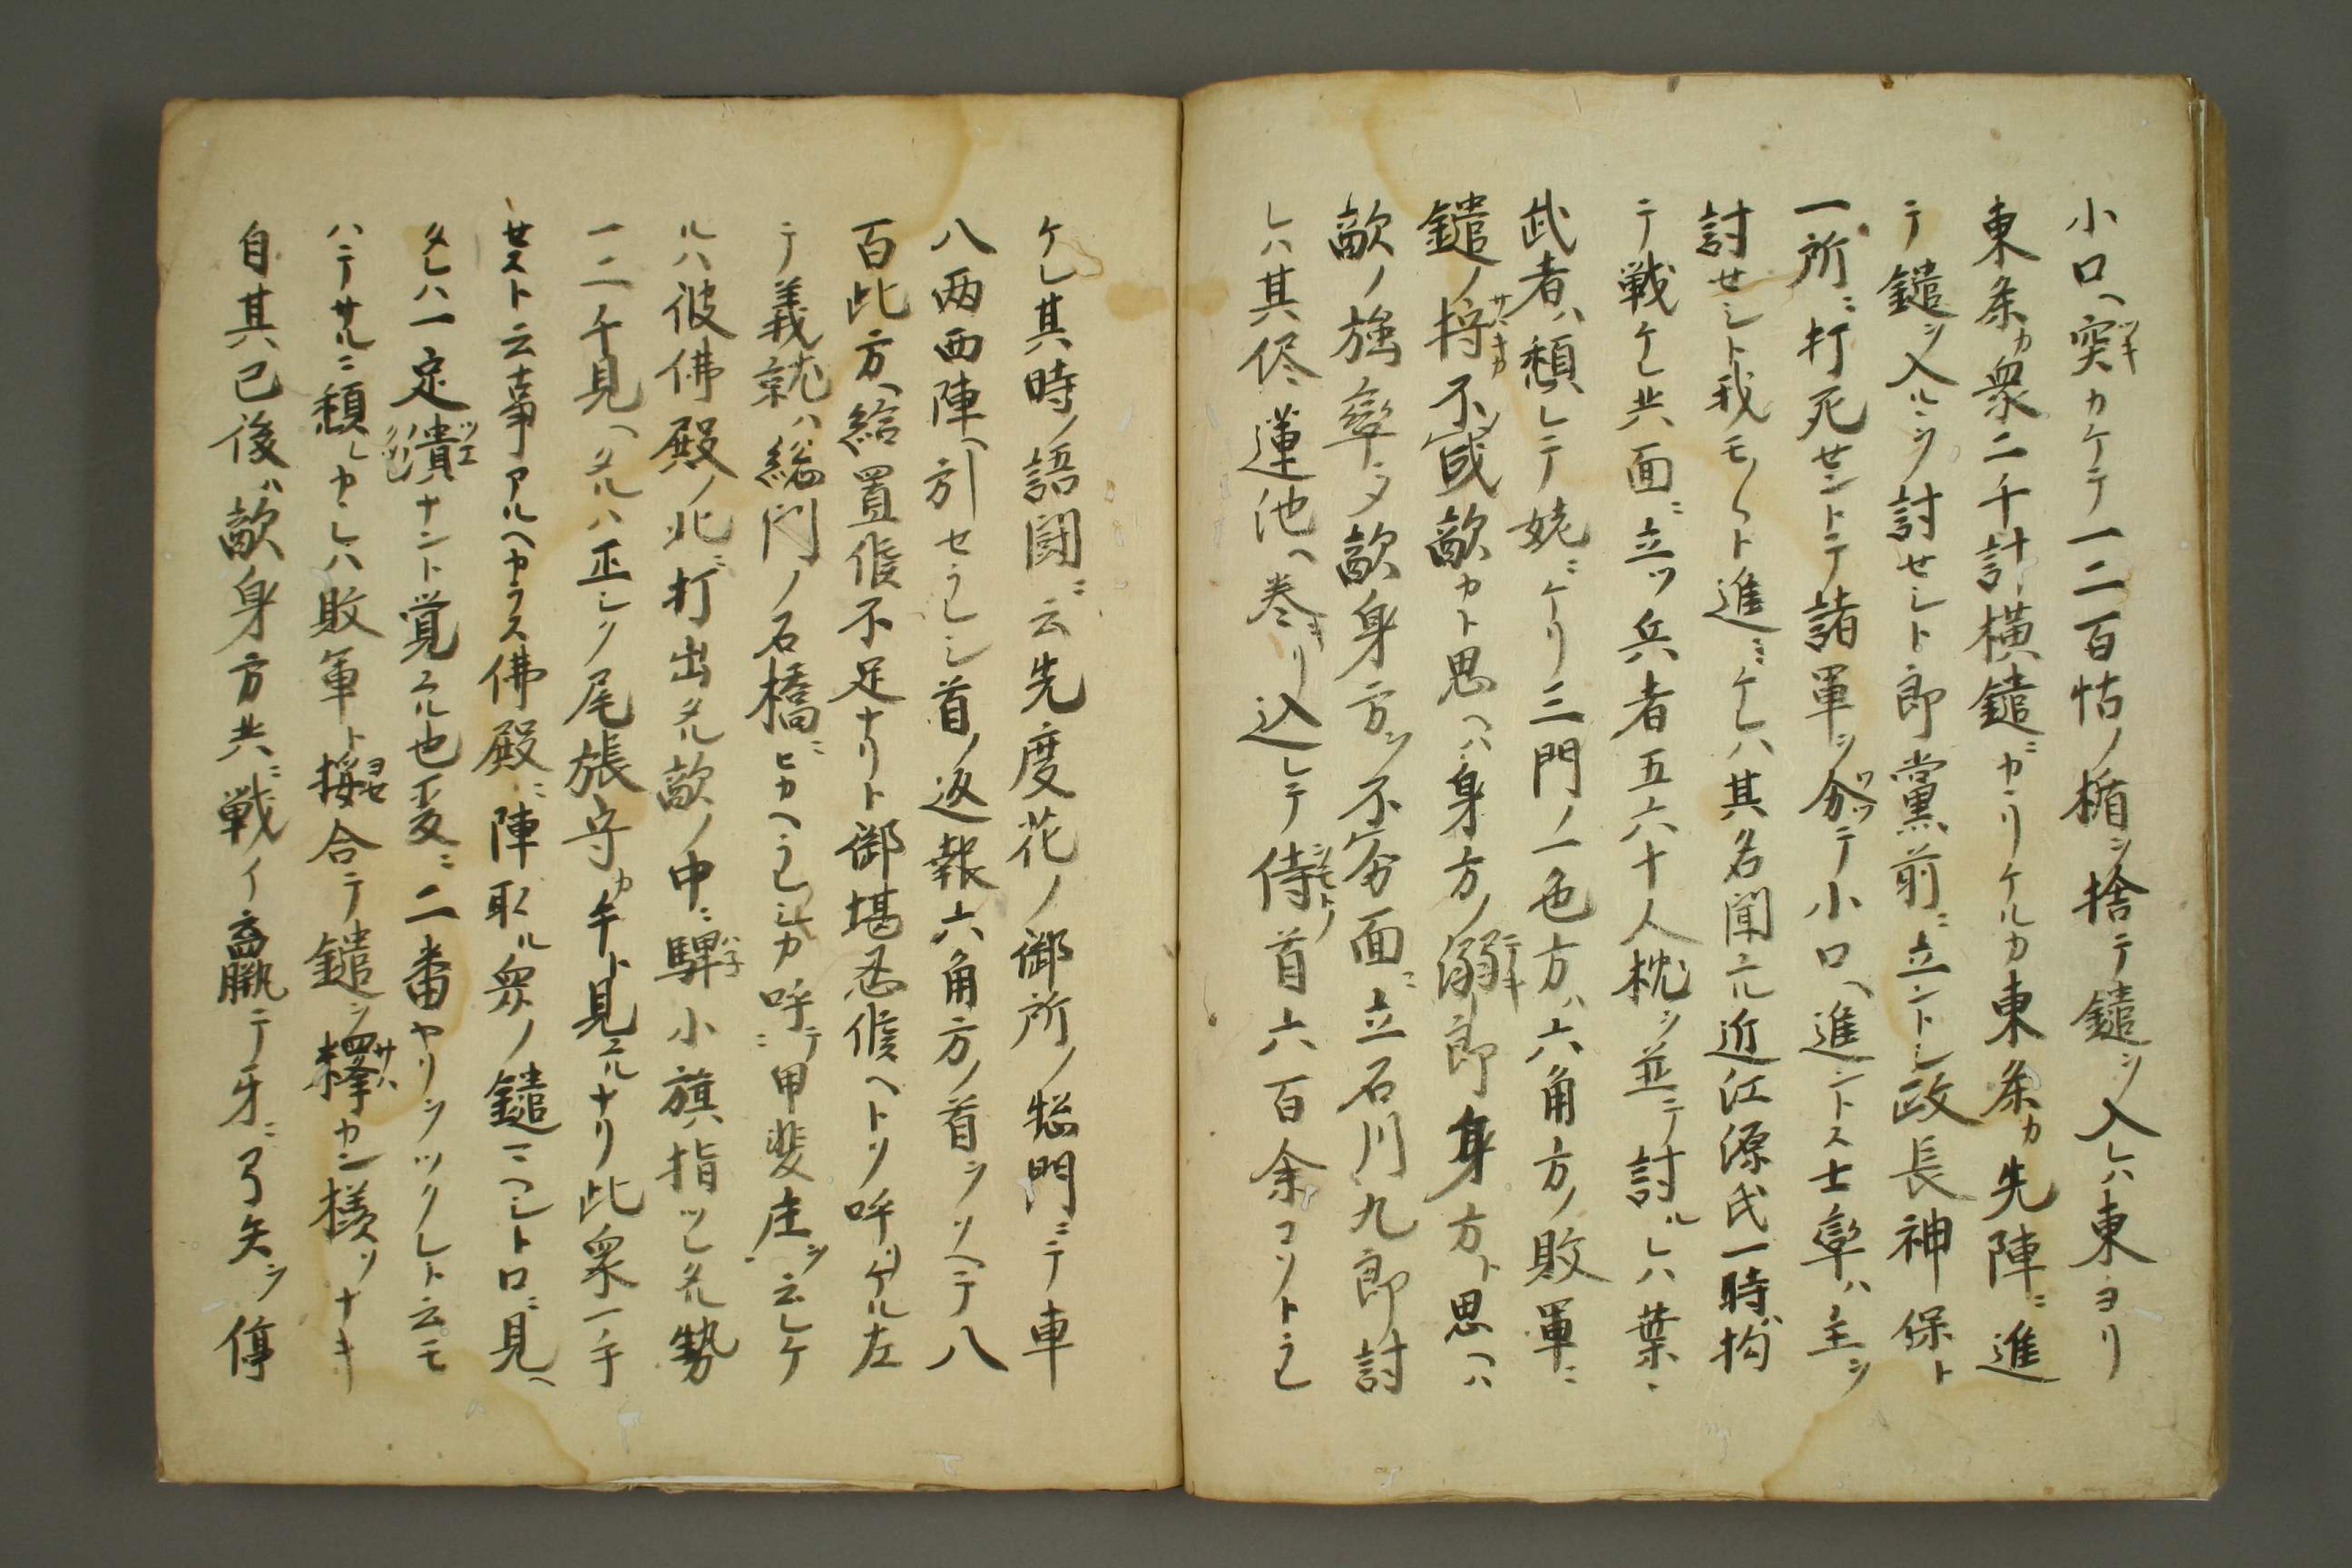 小口ヘ突カケテ一二百帖ノ楯ヲ捨テ鑓ヲ入レハ東ヨリ
東条カ衆二千計横鑓ニガヽリケルカ東条カ先陣ニ進
テ鑓ヲ入ルヲ討セシト郎黨前ニ立ントシ政長神保ト
一所ニ打死セントテ諸軍ヲ分テ小口ヘ進ントス士卒ハ主ヲ
討セシト我モ〳〵ト進ミケレハ其名聞元ル近江源氏一時拘
テ戦ケレ共面ニ立ツ兵者五六十人枕ヲ並テ討ルレハ葉
武者ハ頽レテ姥ニケリ三門ノ一色方ハ六角方ノ敗軍ニ
鑓ノ捋不定敵カト思ヘハ身方ノ溺郎身方ト思ヘハ
敵ノ強卒タ敵身方ヲ不分面ニ立石川九郎討
レハ其侭蓮池ヘ巻リ込レテ侍首六百余コソトラレ
ケレ其時ノ語闘ニ云先度花ノ御所ノ惣門ニテ車
八両西陣ヘ引セラレシ首ノ返報六角方ノ首ヲソヘテ八
百此方ヘ給置候不足ナリト御堪忍候ヘトソ呼ケル左
テ義就ハ総門ノ石橋ニヒカヘラレシカ呼テ甲斐庄ヲ云レケ
ルハ彼佛殿ノ北ニ打出タル敵ノ中ニ騨小旗指ツレタル勢
一二千見ヘタルハ正シク尾張守カ手ト見元ルナリ此衆一手
セスト云事アルヘカラス佛殿ニ陣取ル衆ノ鑓ニヘシトロニ見ヘ
タレハ一定潰ナント覚元ル也爰ニ二番ヤリヲツクレト云モ
ハテサルニ頽レカヽレハ敗軍ト挨合テ鑓ヲ擇カン様ソナキ
自其已後ハ敵身方共ニ戦イ羸テ牙ニ弓矢ヲ停